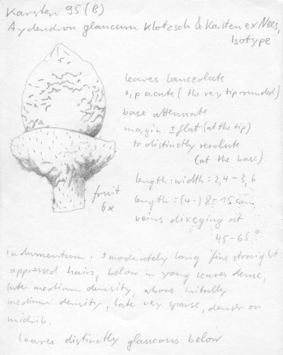 Karsten 95 (B)
Aydendron glaucum Klotzsch & Karsten ex Nees,
Isotype
leaves lanceolate
tip acute (the very tip rounded)
base attenuate
margin ± flat (at the tip)
to distinctly revolute
(at the base)
length : width = 2,4 – 3,6
length = (4-) 8 – 15 cm
veins diverging at
45-65°
fruit
6x
Indumentum: ± moderately long, fine straight
appressed hairs, below in young leaves dense,
late medium density, above initially
medium density, late very sparse, denser on
midrib.
leaves distinctly glaucous below